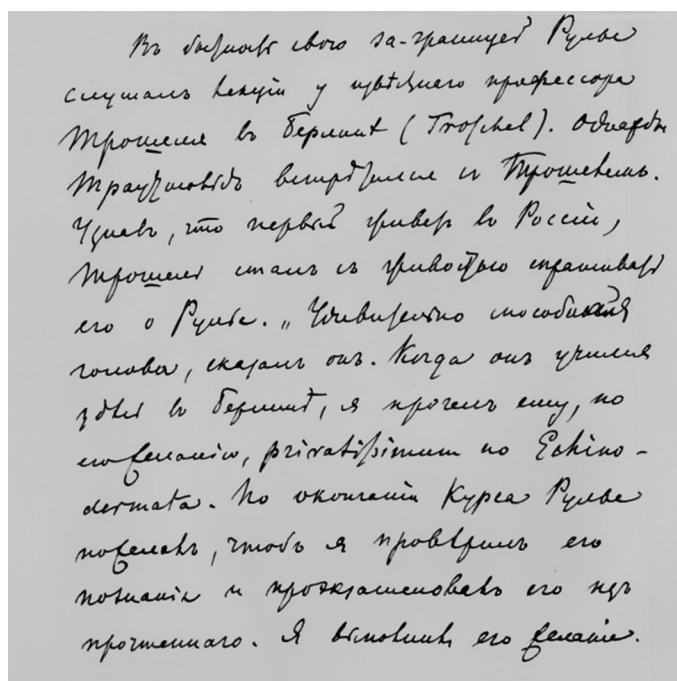 Въ бытность свою за-границей Рулье
слушалъ лекціи у извѣстнаго профессора
Трошеля въ Берлинѣ (Troschel). Однажды
Траутфоттеръ встрѣтился съ Трошелемъ.
Узнавъ, что первый живетъ въ Россіи,
Трошель сталъ съ живостью спрашивать
его о Рулье. „Удивительно способная
голова, сказалъ онъ. Когда онъ учился
здѣсь въ Берлинѣ, я прочелъ ему, по
его желанію, privatissimum по Echino-
dermata. По окончаніи курса Рулье
пожелалъ, чтобъ я провѣрилъ его
познанія и проэкзаменовалъ его изъ
прочтеннаго. Я выполнилъ его желаніе.